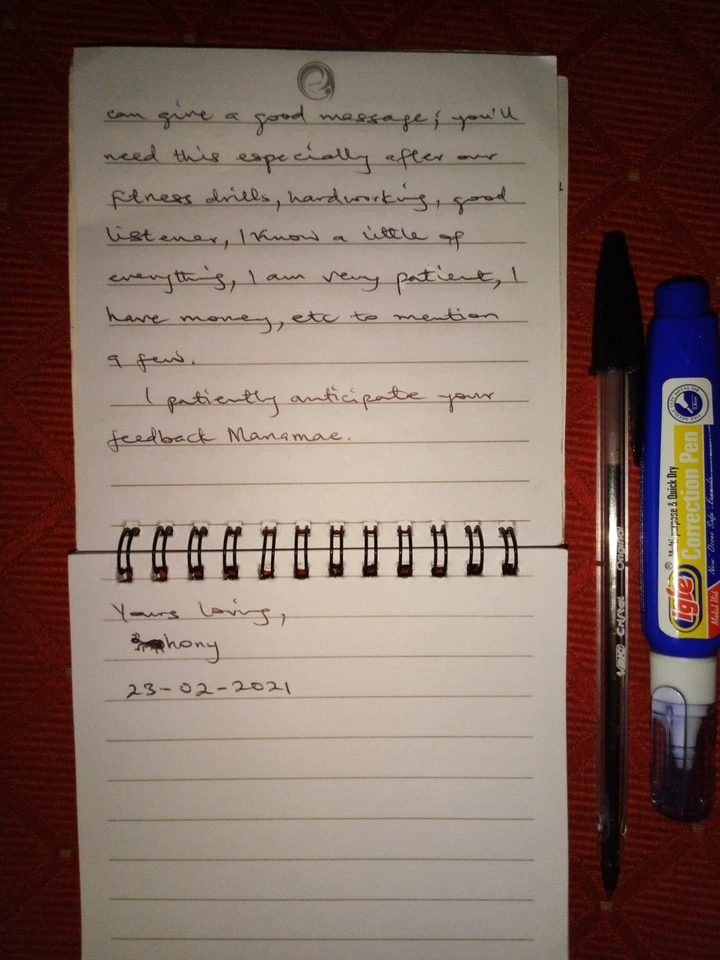 can give a good massage; you'll
need this especially after our
fitness drills, hardworking, good
listener, I know a little of
everything, I am very patient, I
have money, etc to mention
a few.
I patiently anticipate your
feedback Manamae.
Yours loving,
hony
23-02-2021
Cristal Original
igle®
Multi purpose & Quick Dry
Correction Pen
Metal Tip